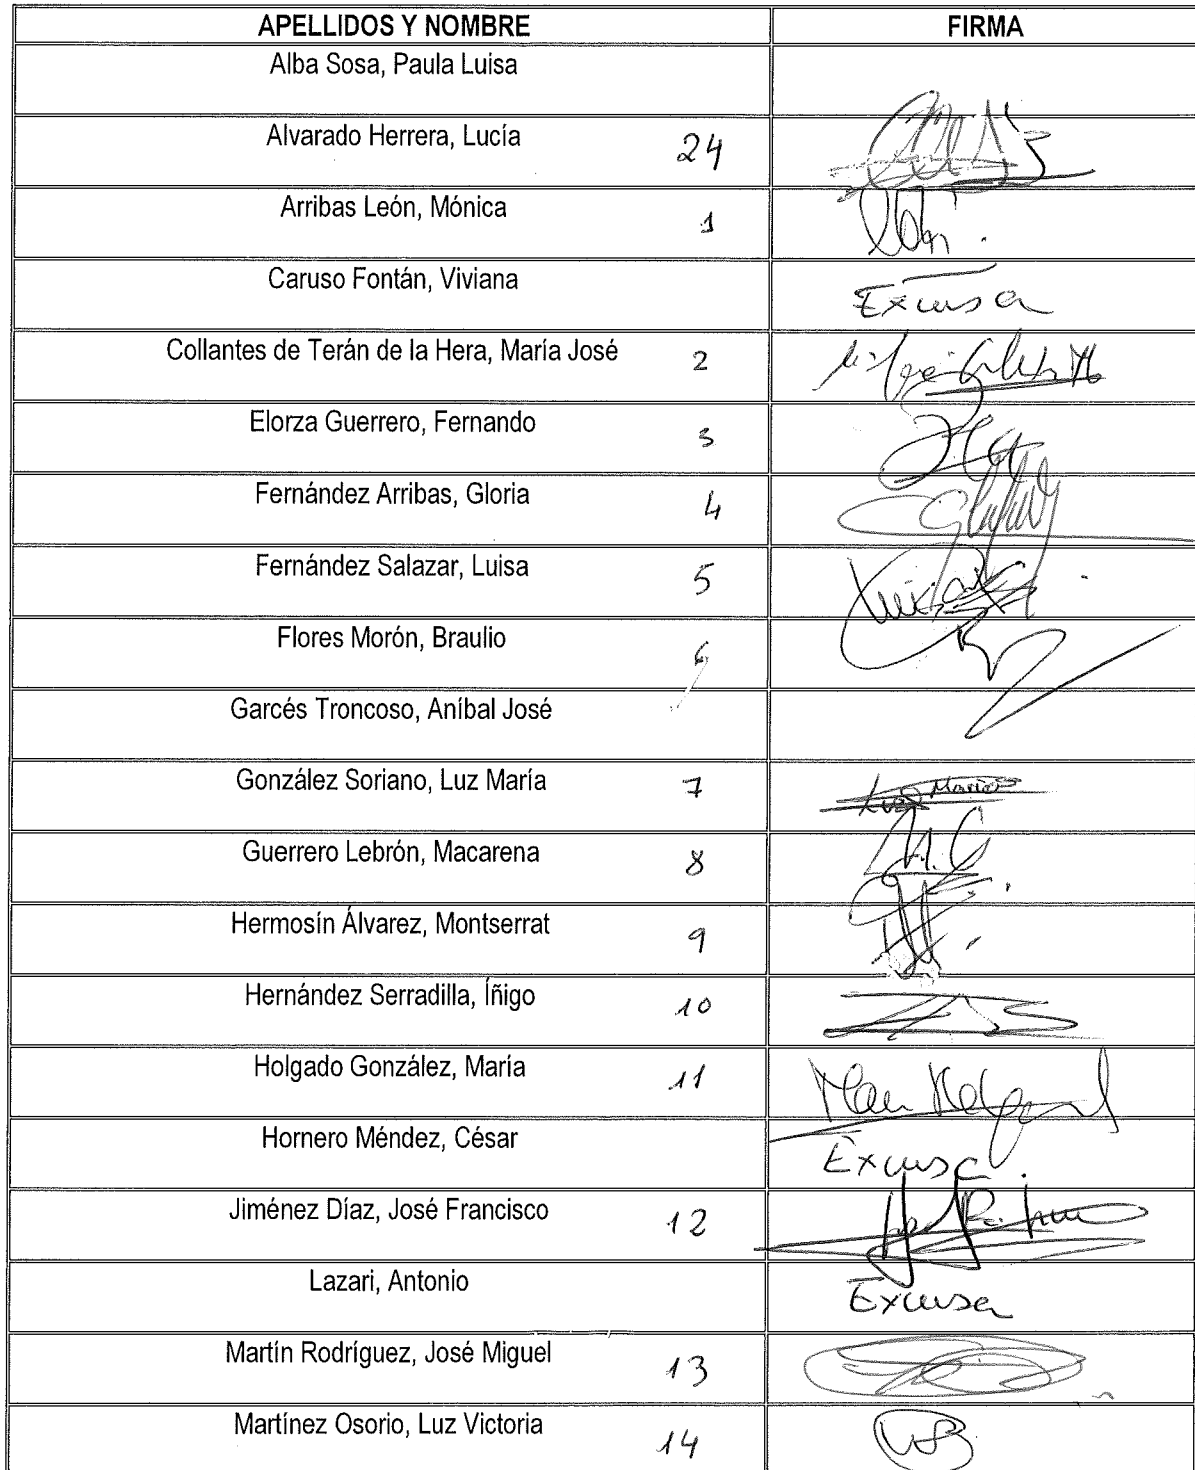 APELLIDOS Y NOMBRE FIRMA
Alba Sosa, Paula Luisa
Alvarado Herrera, Lucía 24
Arribas León, Mónica 1
Caruso Fontán, Viviana Excusa
Collantes de Terán de la Hera, María José 2
Elorza Guerrero, Fernando 3
Fernández Arribas, Gloria 4
Fernández Salazar, Luisa 5
Flores Morón, Braulio 6
Garcés Troncoso, Aníbal José
González Soriano, Luz María 7 Luz María
Guerrero Lebrón, Macarena 8
Hermosín Álvarez, Montserrat 9
Hernández Serradilla, Íñigo 10
Holgado González, María 11
Hornero Méndez, César Excusa
Jiménez Díaz, José Francisco 12
Lazari, Antonio Excusa
Martín Rodríguez, José Miguel 13
Martínez Osorio, Luz Victoria 14